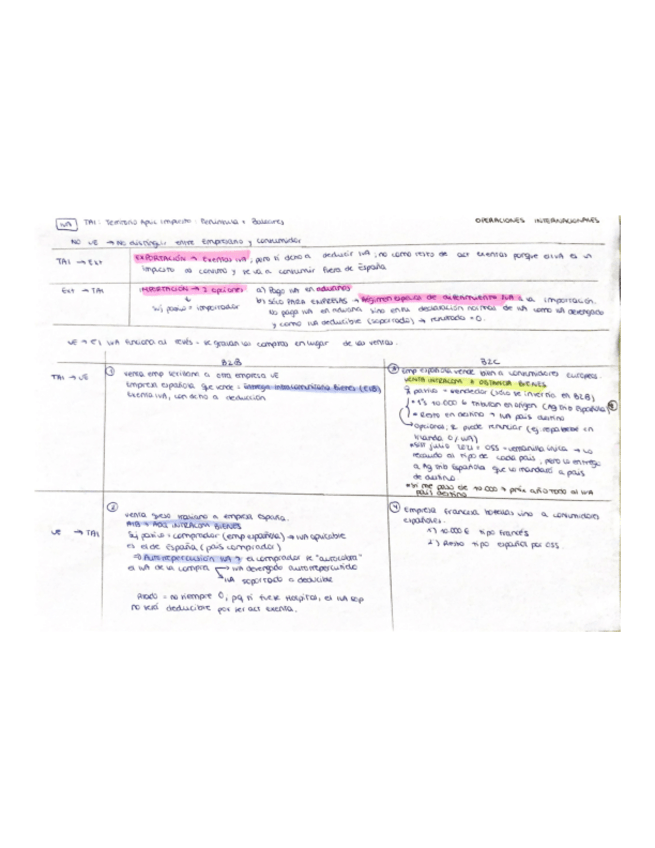 IVA TAI: Territorio Aplic Impuesto: Península + Baleares
OPERACIONES INTERNACIONALES
NO UE → No distinguir entre Empresario y consumidor
TAI → Ext
EXPORTACIÓN → Exentas IVA, pero sí dcho a deducir IVA, no como resto de act exentas porque el IVA es un
impuesto s/ consumo y se va a consumir fuera de España
Ext → TAI
IMPORTACIÓN → 2 opciones
Suj pasivo = importador
a) Pago IVA en aduanas
b) SÓLO PARA EMPRESAS → Régimen especial de diferimiento IVA a la importación.
No pago IVA en aduana sino en mi declaración normal de IVA como IVA devengado
y como IVA deducible (soportado) → resultado = 0.
UE → El IVA funciona al revés - se gravan las compras en lugar de las ventas.
B2B
B2C
TAI → UE
① Venta emp sevillana a otra empresa UE
Empresa española que vende = Entrega Intracomunitaria Bienes (EIB)
Exenta IVA, con dcho a deducción
③ Emp española vende bien a consumidores europeos.
VENTA INTRACOM A DISTANCIA BIENES
S pasivo = vendedor (sólo se invertía en B2B)
* 1ºs 10.000 € tributan en origen (Ag Trib Española)
* Resto en destino → IVA país destino
Opcional, se puede renunciar (ej. repartirse en
Irlanda 0% IVA)
julio 2021 = OSS = ventanilla única → Lo
recaudo al tipo de cada país, pero lo entrego
a Ag Trib Española que lo mandará a país
de destino
* Si me paso de 10.000 → próx año todo al IVA
país destino
UE → TAI
② Venta queso italiano a empresa España.
AIB → ADQ INTRACOM BIENES
Suj pasivo = comprador (emp española) → IVA aplicable
es el de España (país comprador)
⇒ Autorrepercusión IVA → el comprador se "autocobra"
el IVA de la compra → IVA devengado autorrepercutido
→ IVA soportado o deducible
= no siempre 0, pq si fuera Hospital, el IVA sop
no será deducible por ser act exenta.
④ Empresa francesa botellas vino a consumidores
españoles.
10.000 € tipo francés
Resto tipo español por OSS